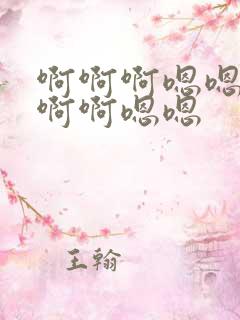 啊啊啊嗯嗯
啊啊嗯嗯
王翰